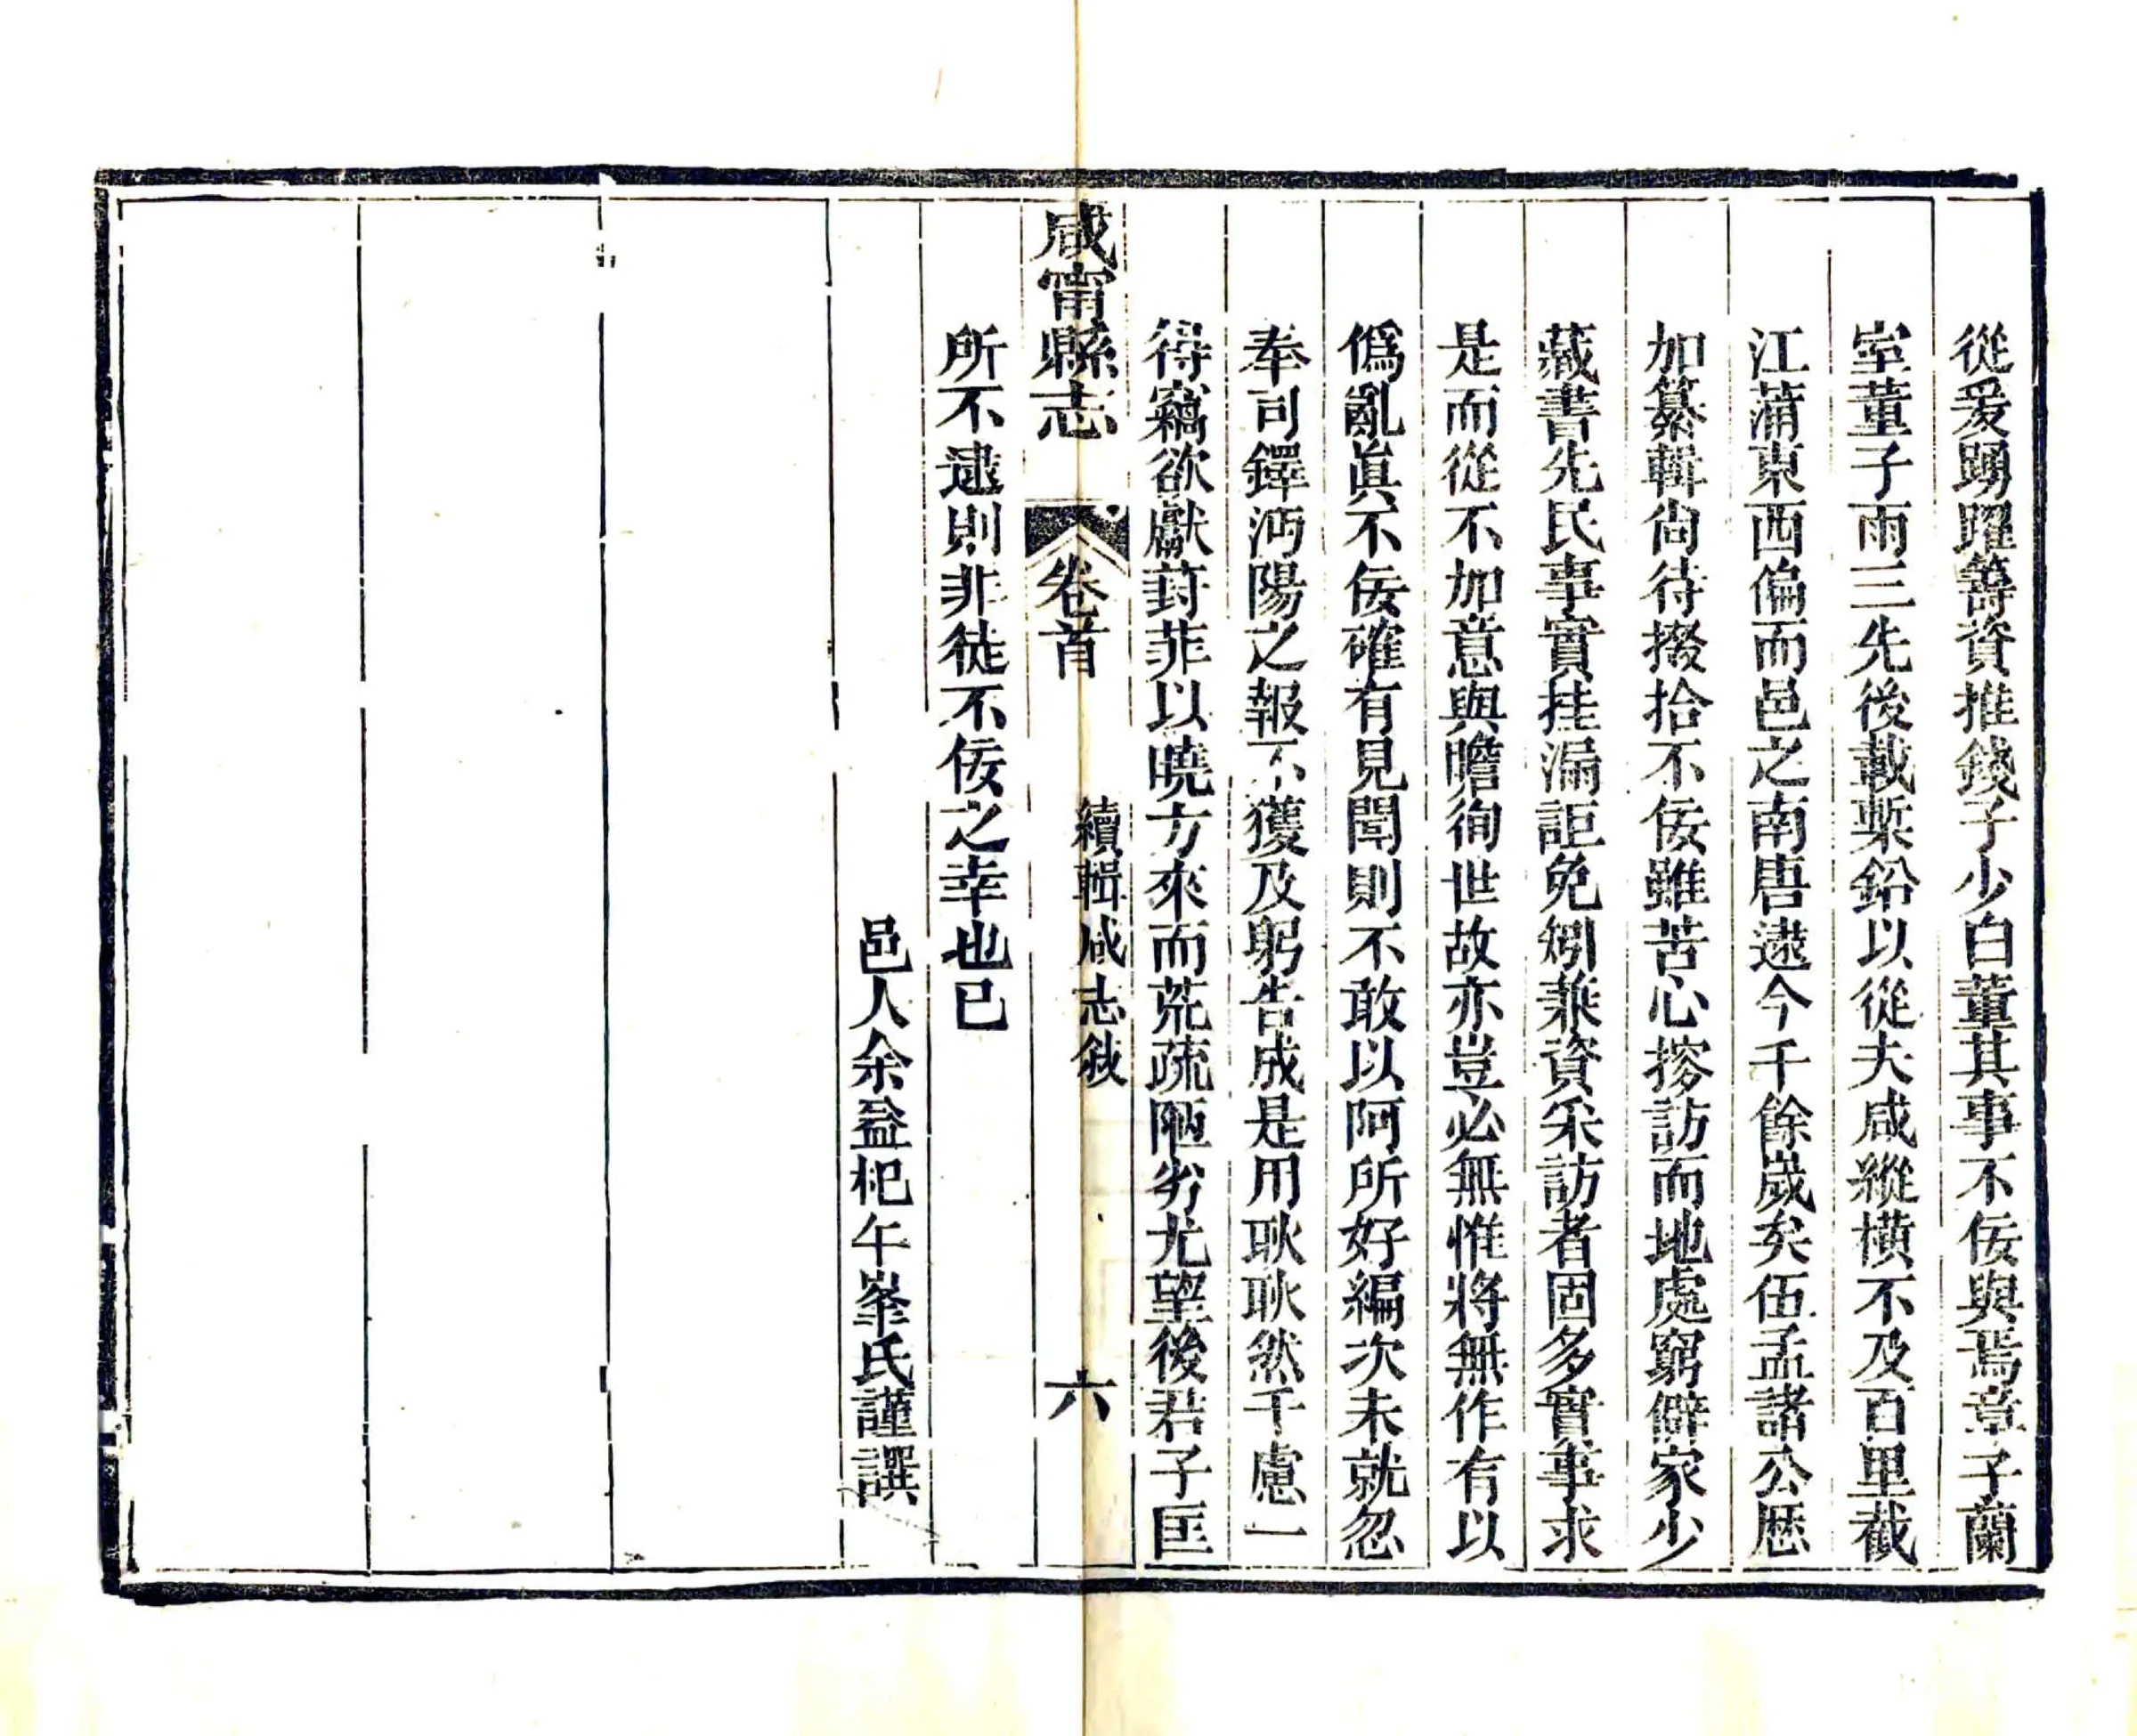 從爰踴躍籌資推錢子少白董其事不佞與焉章子蘭
室董子雨三先後載槧鉛以從夫咸縱横不及百里截
江蒲東西偏而邑之南唐逮今千餘歲矣伍孟諸公歴
加纂輯尙待掇拾不佞雖苦心搜訪而地處窮僻家少
藏書先民事實挂漏詎免矧兼資采訪者固多實事求
是而從不加意與瞻徇世故亦豈必無惟將無作有以
僞亂眞不佞確有見聞則不敢以阿所好編次未就忽
奉司鐸沔陽之報不獲及躬告成是用耿耿然千慮一
得竊欲獻葑菲以曉方來而荒疏陋劣尤望後君子匡
咸甯縣志 卷首 續輯咸志敘 六
所不逮則非徒不佞之幸也已
邑人余益杞午峯氏謹譔